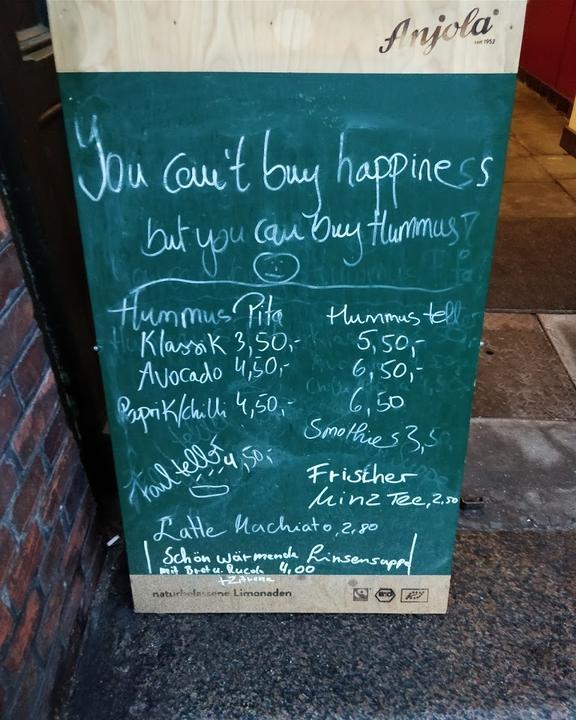 Anjola
seit 1952
You can't buy happiness
but you can buy Hummus!
Hummus Pita
Hummustell
Klassik 3,50,- 5,50,-
Avocado 4,50,- 6,50,-
Paprik/chilli 4,50,- 6,50
Smothies 3,5
4,50,-
Frischer
Minz Tee, 2,50
Latte Machiato, 2,80
Schön wärmende Linsensuppe
mit Brot u. Rucola 4,00
+Zitrone
naturbelassene Limonaden
BIO